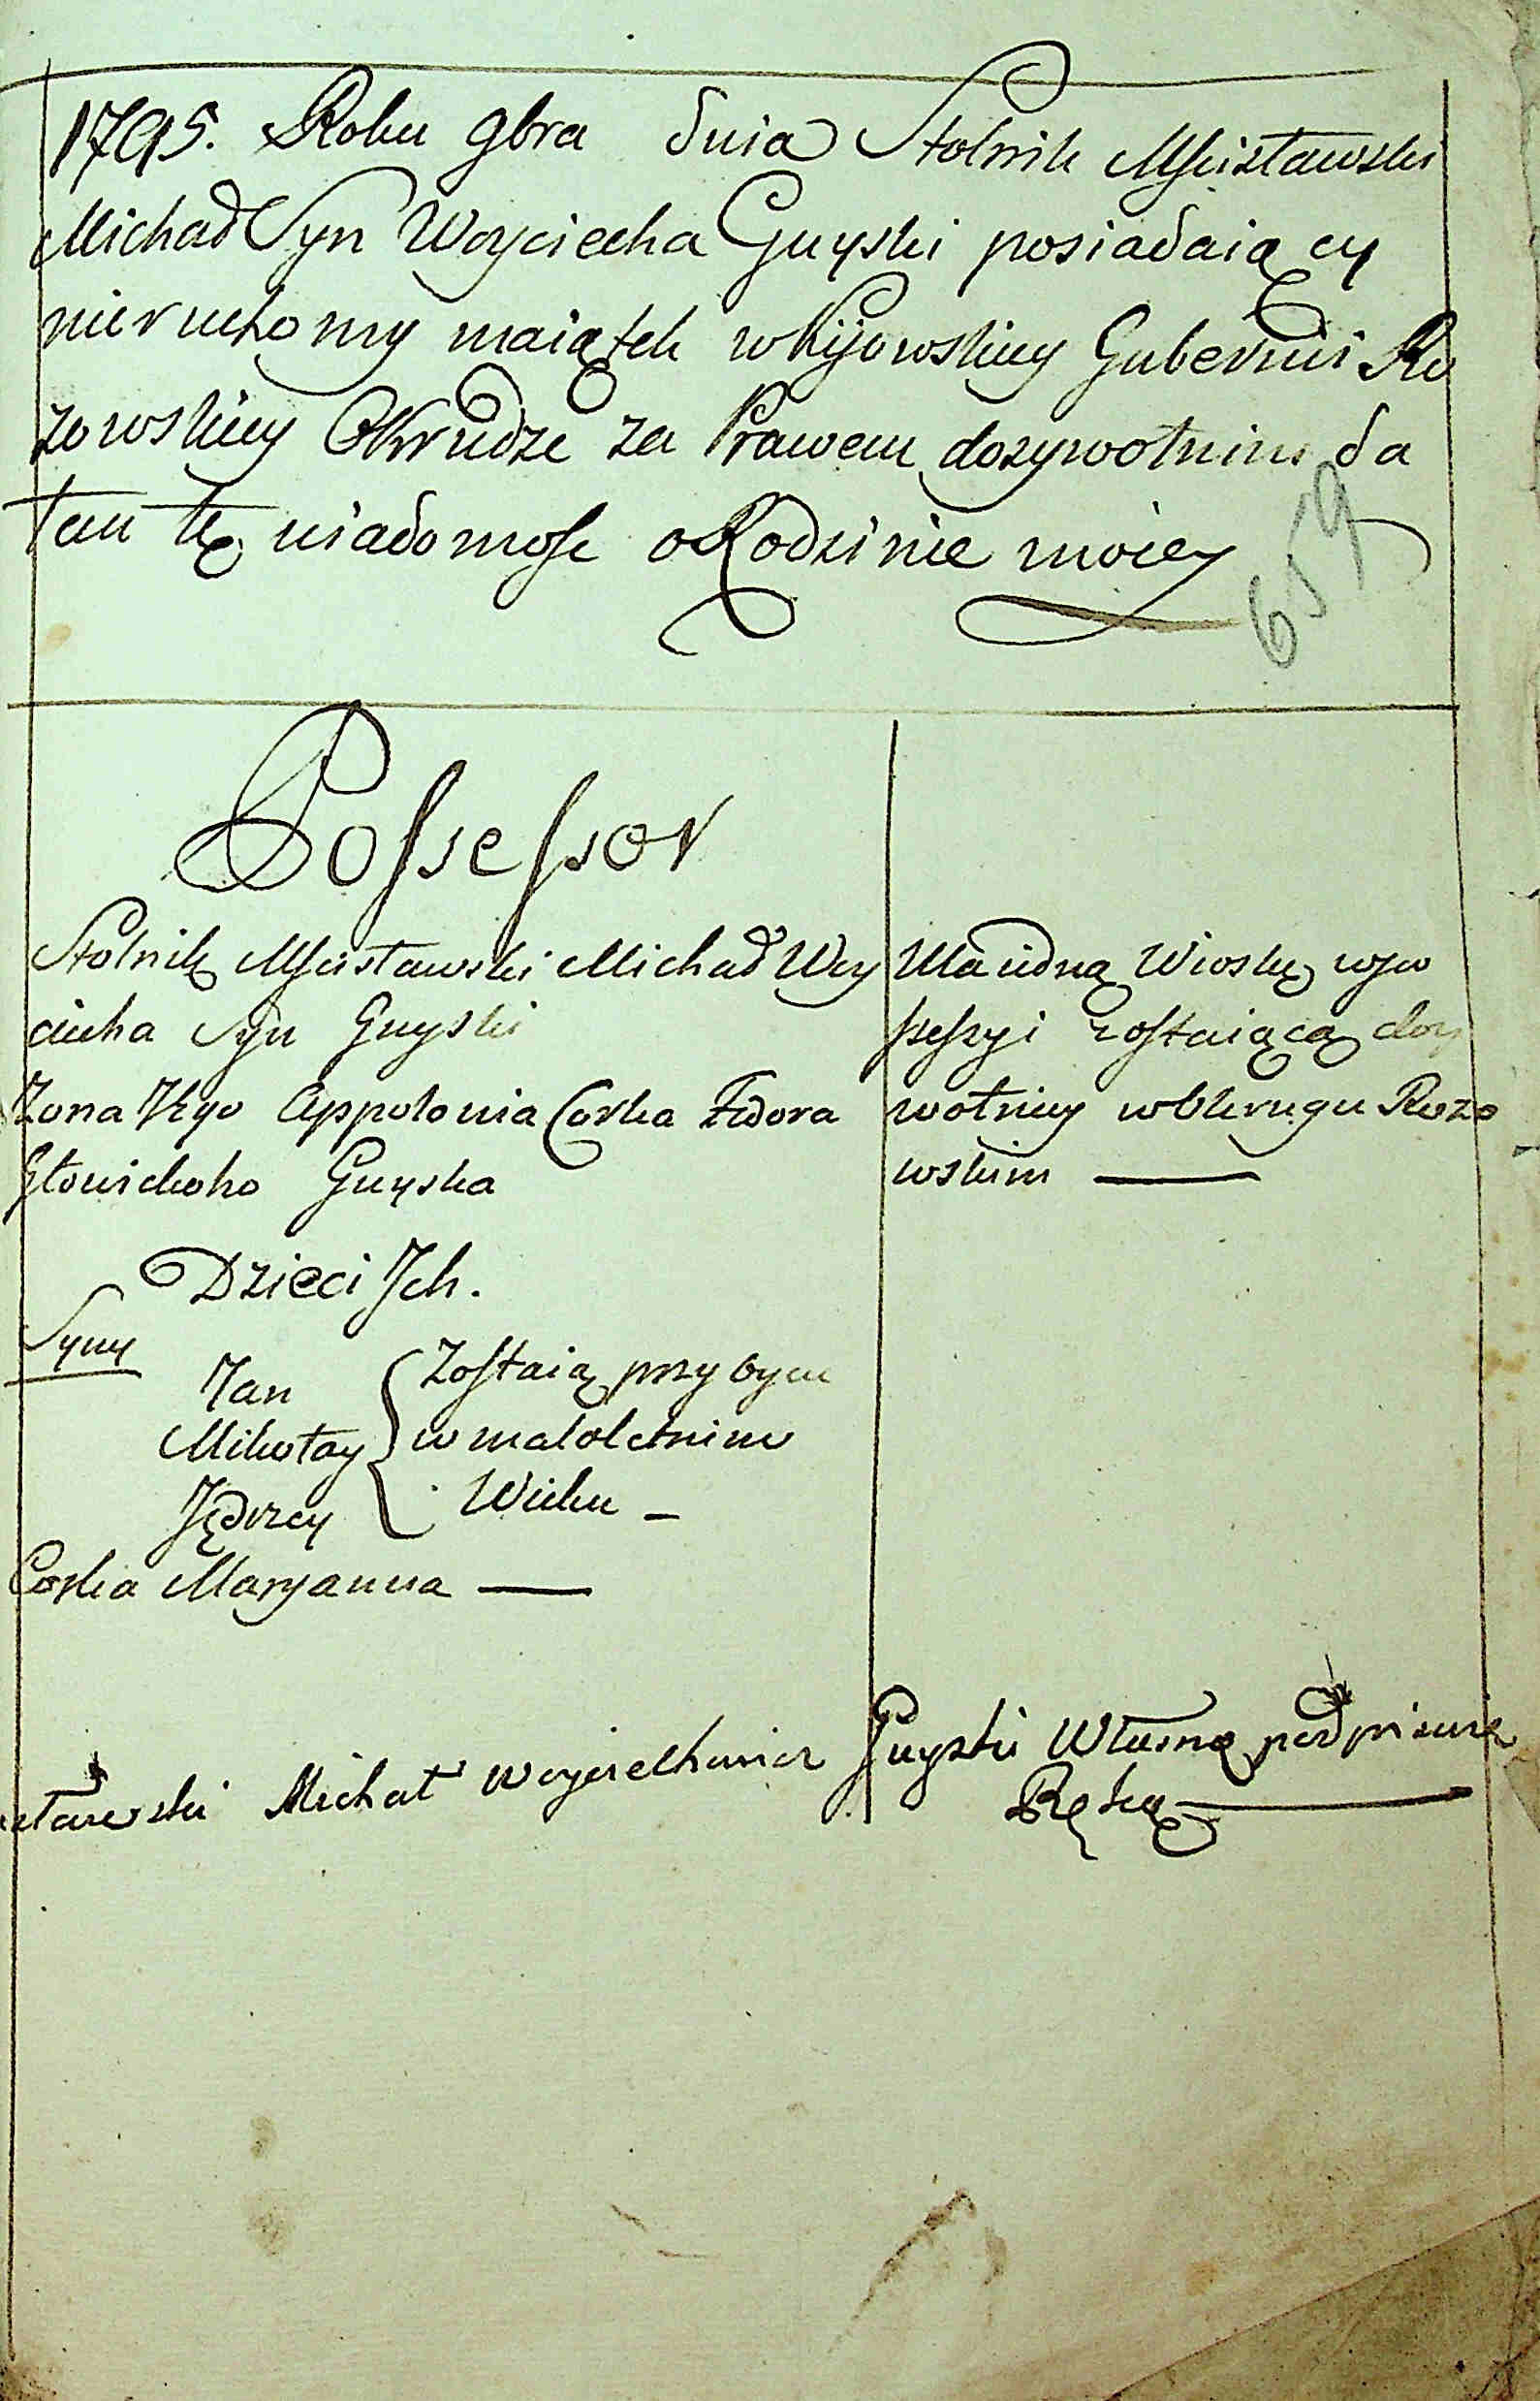 1795. Roku 9bra dnia Stolnik Mscisławski
Michał Syn Woyciecha Guyski posiadaią cy
nieruchomy maiątek w Kijowskiey Gubernii Ro
zowskiey Okrudze za Prawem dozywotnim da
łem tę wiadomosc o Rodzinie moiey
659
Possessor
Stolnik Mscisławski Michał Woy
ciecha Syn Guyski
Zona Jego Appolonia Corka Fedora
Guyska
Dzieci Jch.
Syny
Jan
Mikołay
Jędrzey
Zostaią przy oycu
w maloletnim
Wieku –
Corka Maryanna —
Ma iedną Wioskę w po
ssessyi zostaiącą dozy
wotniey w Okrugu Rozo
wskim —
Michał Woyciechowicz Guyski Własną podpisuię
Ręką —